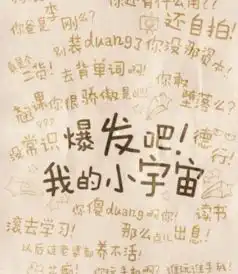 你还有什么用！！
你爸是李刚么？
还自拍！
别装duang了你没那资本！
二货！去背单词啊！
你敢堕落么？
逃课你很骄傲是
没常识
爆发吧！
德行！
我的小宇宙
你傻duang啊你！
读书
滚去学习！
那么点儿出息！
以后连老婆都养不活！